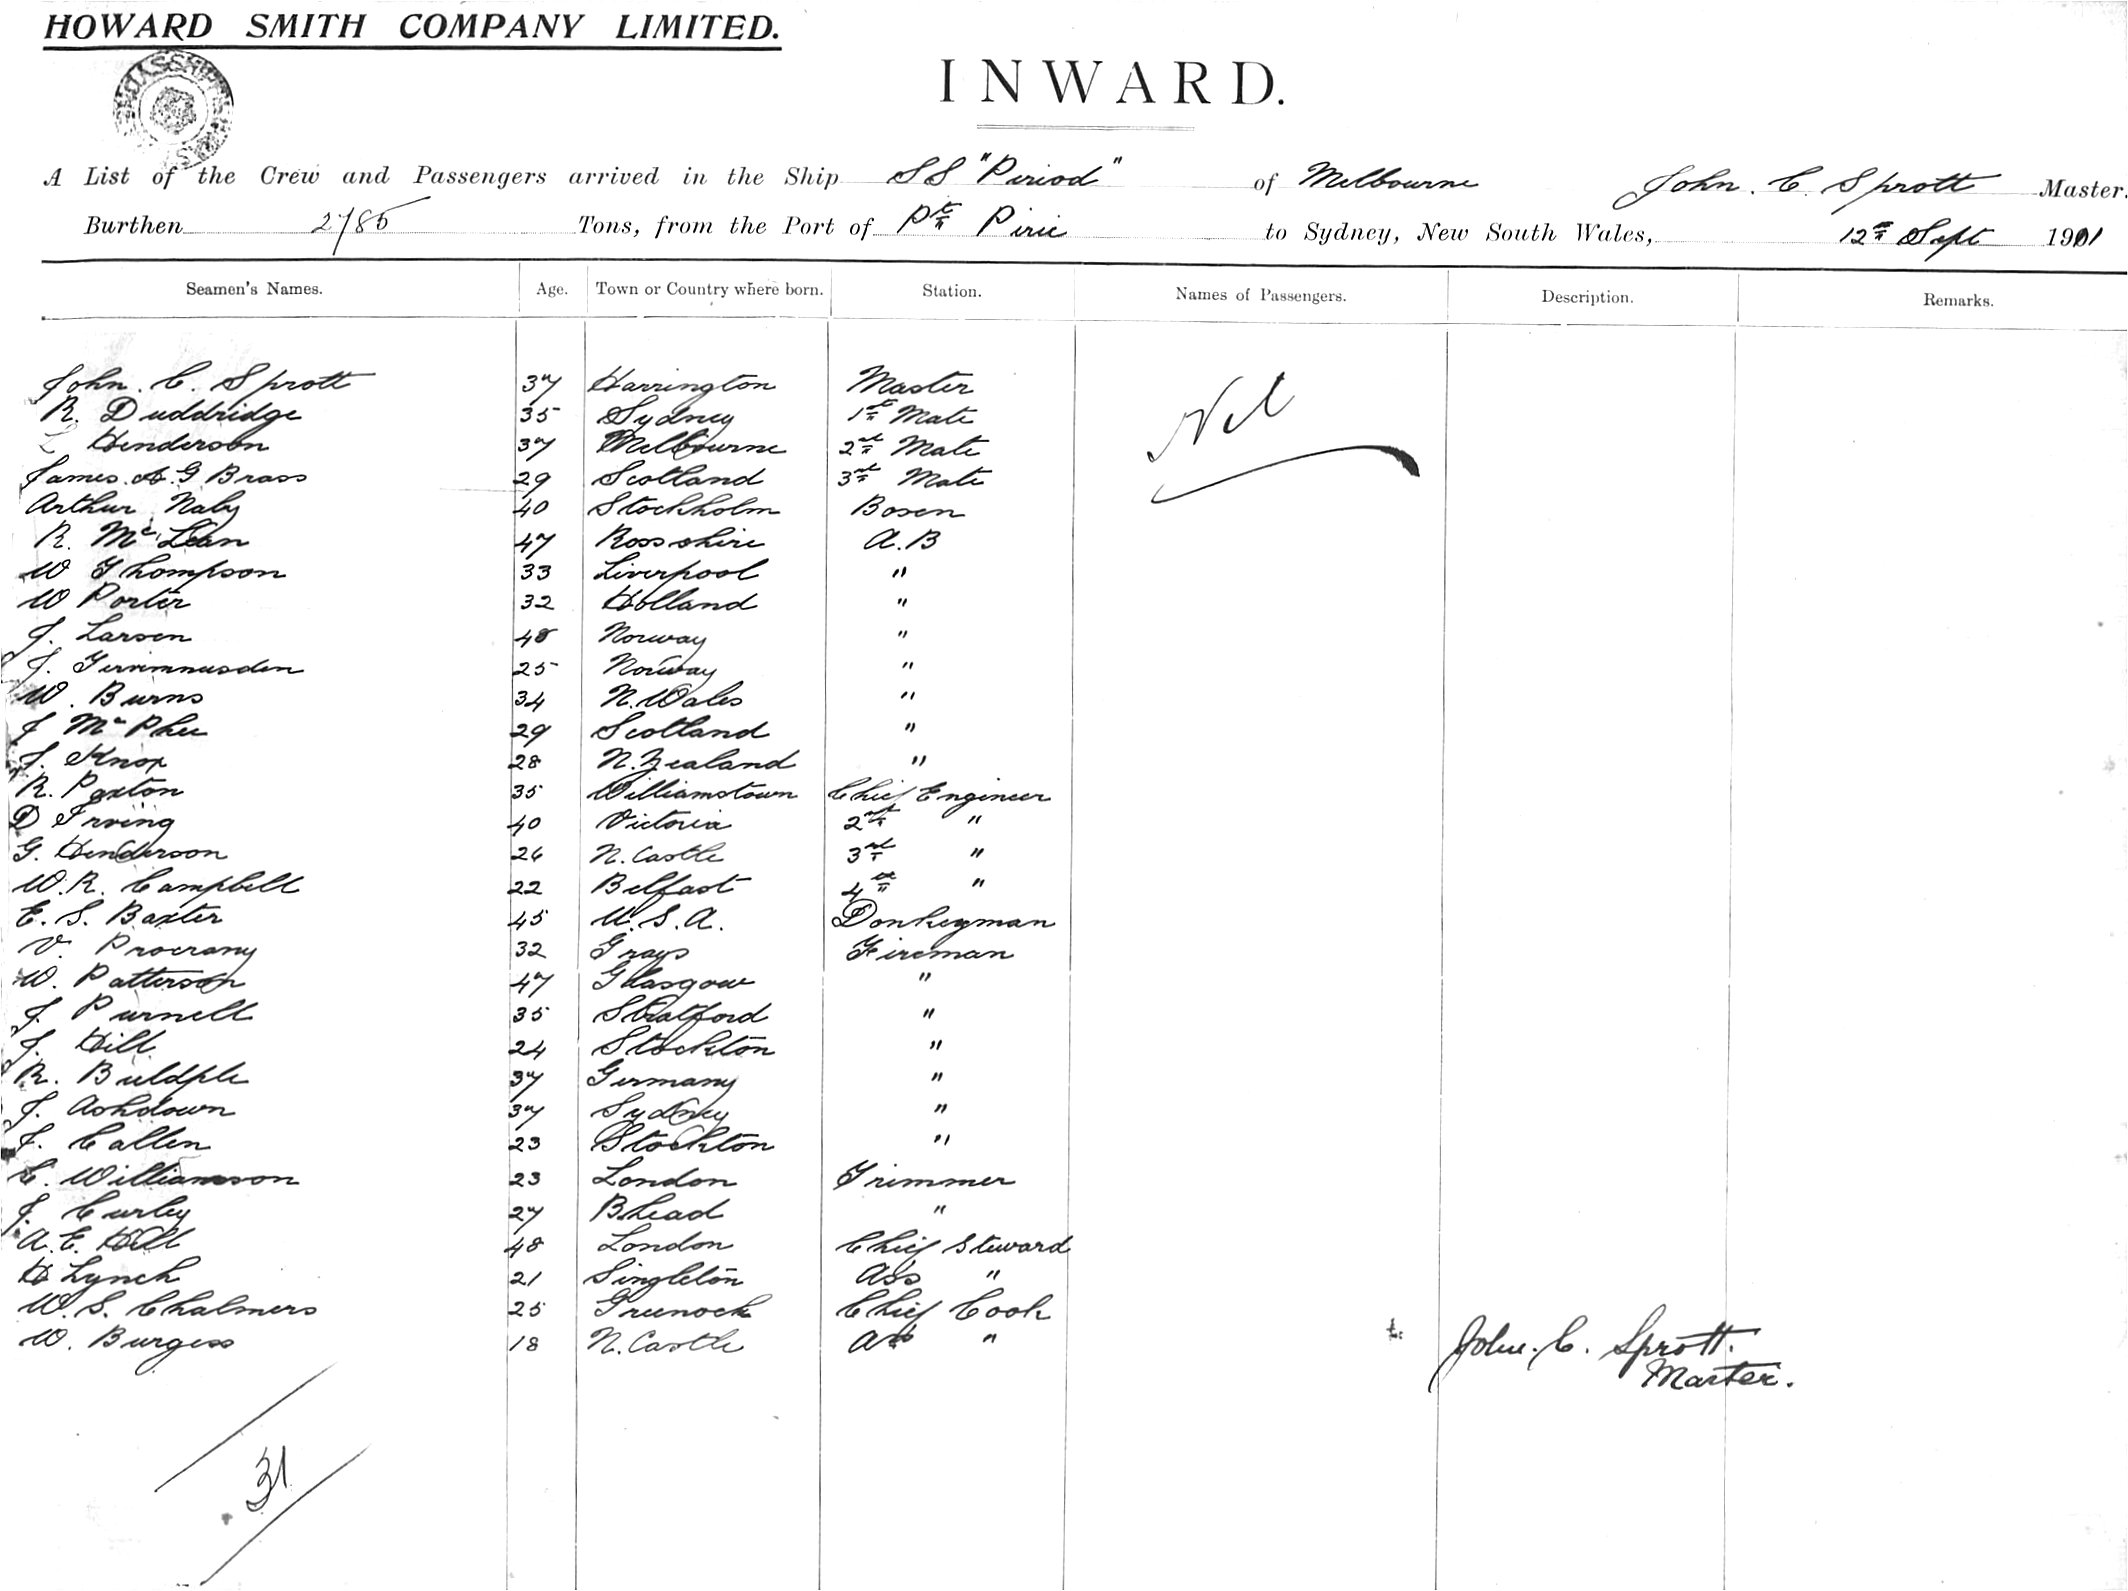 HOWARD SMITH COMPANY LIMITED.
INWARD.
A List of the Crew and Passengers arrived in the Ship SS "Period" of Melbourne John. C Sprott Master.
Burthen 2785 Tons, from the Port of Pt Pirie to Sydney, New South Wales, 12th Sept 1901
Seamen's Names. Age. Town or Country where born. Station. Names of Passengers. Description. Remarks.
John. C. Sprott 37 Harrington Master Nil
R. Duddridge 35 Sydney 1st Mate
Henderson 37 Melbourne 2nd Mate
James. A. G Brass 29 Scotland 3rd Mate
Arthur Naby 40 Stockholm Bosen
R. McLean 47 Ross shire A.B
W Thompson 33 Liverpool "
W Porter 32 Holland "
J. Larsen 48 Norway "
J. 25 Norway "
W. Burns 34 N. Wales "
J McPhee 29 Scotland "
J. Knox 28 N. Zealand "
R. Paxton 35 Williamstown Chief Engineer
D Irving 40 Victoria 2nd "
G. Henderson 26 N. Castle 3rd "
W. R. Campbell 22 Belfast 4th "
E. S. Baxter 45 U. S. A. Donkeyman
V. 32 Grays Fireman
W. Patterson 47 Glasgow "
J. Purnell 35 Stratford "
J. Hill 24 Stockton "
R. 37 Germany "
J. Ashdown 37 Sydney "
J. Callen 23 Stockton "
C. Williamson 23 London Trimmer
J. Curley 27 B.head "
A. E. Hill 48 London Chief Steward
H Lynch 21 Singleton Ass "
W. S. Chalmers 25 Greenock Chief Cook
W. Burgess 18 N. Castle Ass "
John. C. Sprott.
Master.
31